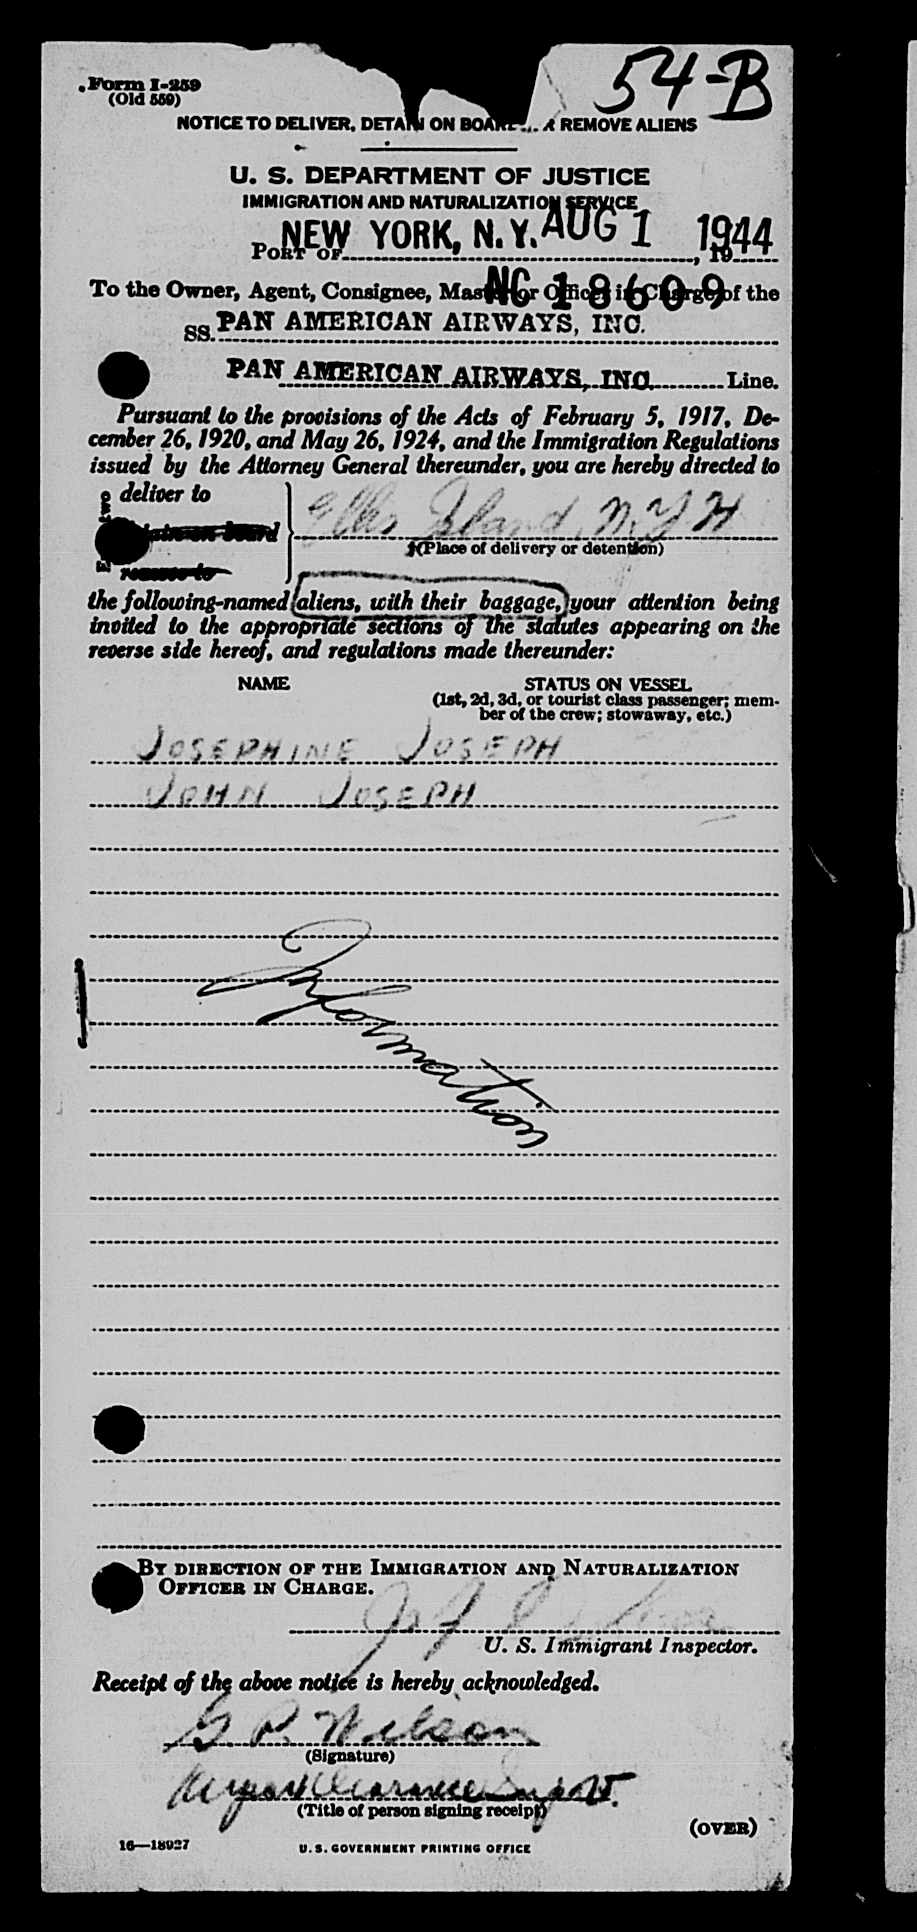 54-B
Form I-259
(Old 559)
NOTICE TO DELIVER, DETAIN ON BOARD REMOVE ALIENS
U. S. DEPARTMENT OF JUSTICE
IMMIGRATION AND NATURALIZATION SERVICE
PORT OF NEW YORK, N.Y. AUG 1 1944, 19
NC 18609
To the Owner, Agent, Consignee, Master or Officer in Charge of the
SS. PAN AMERICAN AIRWAYS, INC.
PAN AMERICAN AIRWAYS, INC. Line.
Pursuant to the provisions of the Acts of February 5, 1917, De-
cember 26, 1920, and May 26, 1924, and the Immigration Regulations
issued by the Attorney General thereunder, you are hereby directed to
deliver to
detain on board
remove to
Ellis Island, N.Y.H
(Place of delivery or detention)
the following-named aliens, with their baggage, your attention being
invited to the appropriate sections of the statutes appearing on the
reverse side hereof, and regulations made thereunder:
NAME STATUS ON VESSEL
(1st, 2d, 3d, or tourist class passenger; mem-
ber of the crew; stowaway, etc.)
JOSEPHINE JOSEPH
JOHN JOSEPH
Information
BY DIRECTION OF THE IMMIGRATION AND NATURALIZATION
OFFICER IN CHARGE.
U. S. Immigrant Inspector.
Receipt of the above notice is hereby acknowledged.
G. P. Wilson
(Signature)
Airport Clearance Supv.
(Title of person signing receipt)
(OVER)
16—18927 U. S. GOVERNMENT PRINTING OFFICE